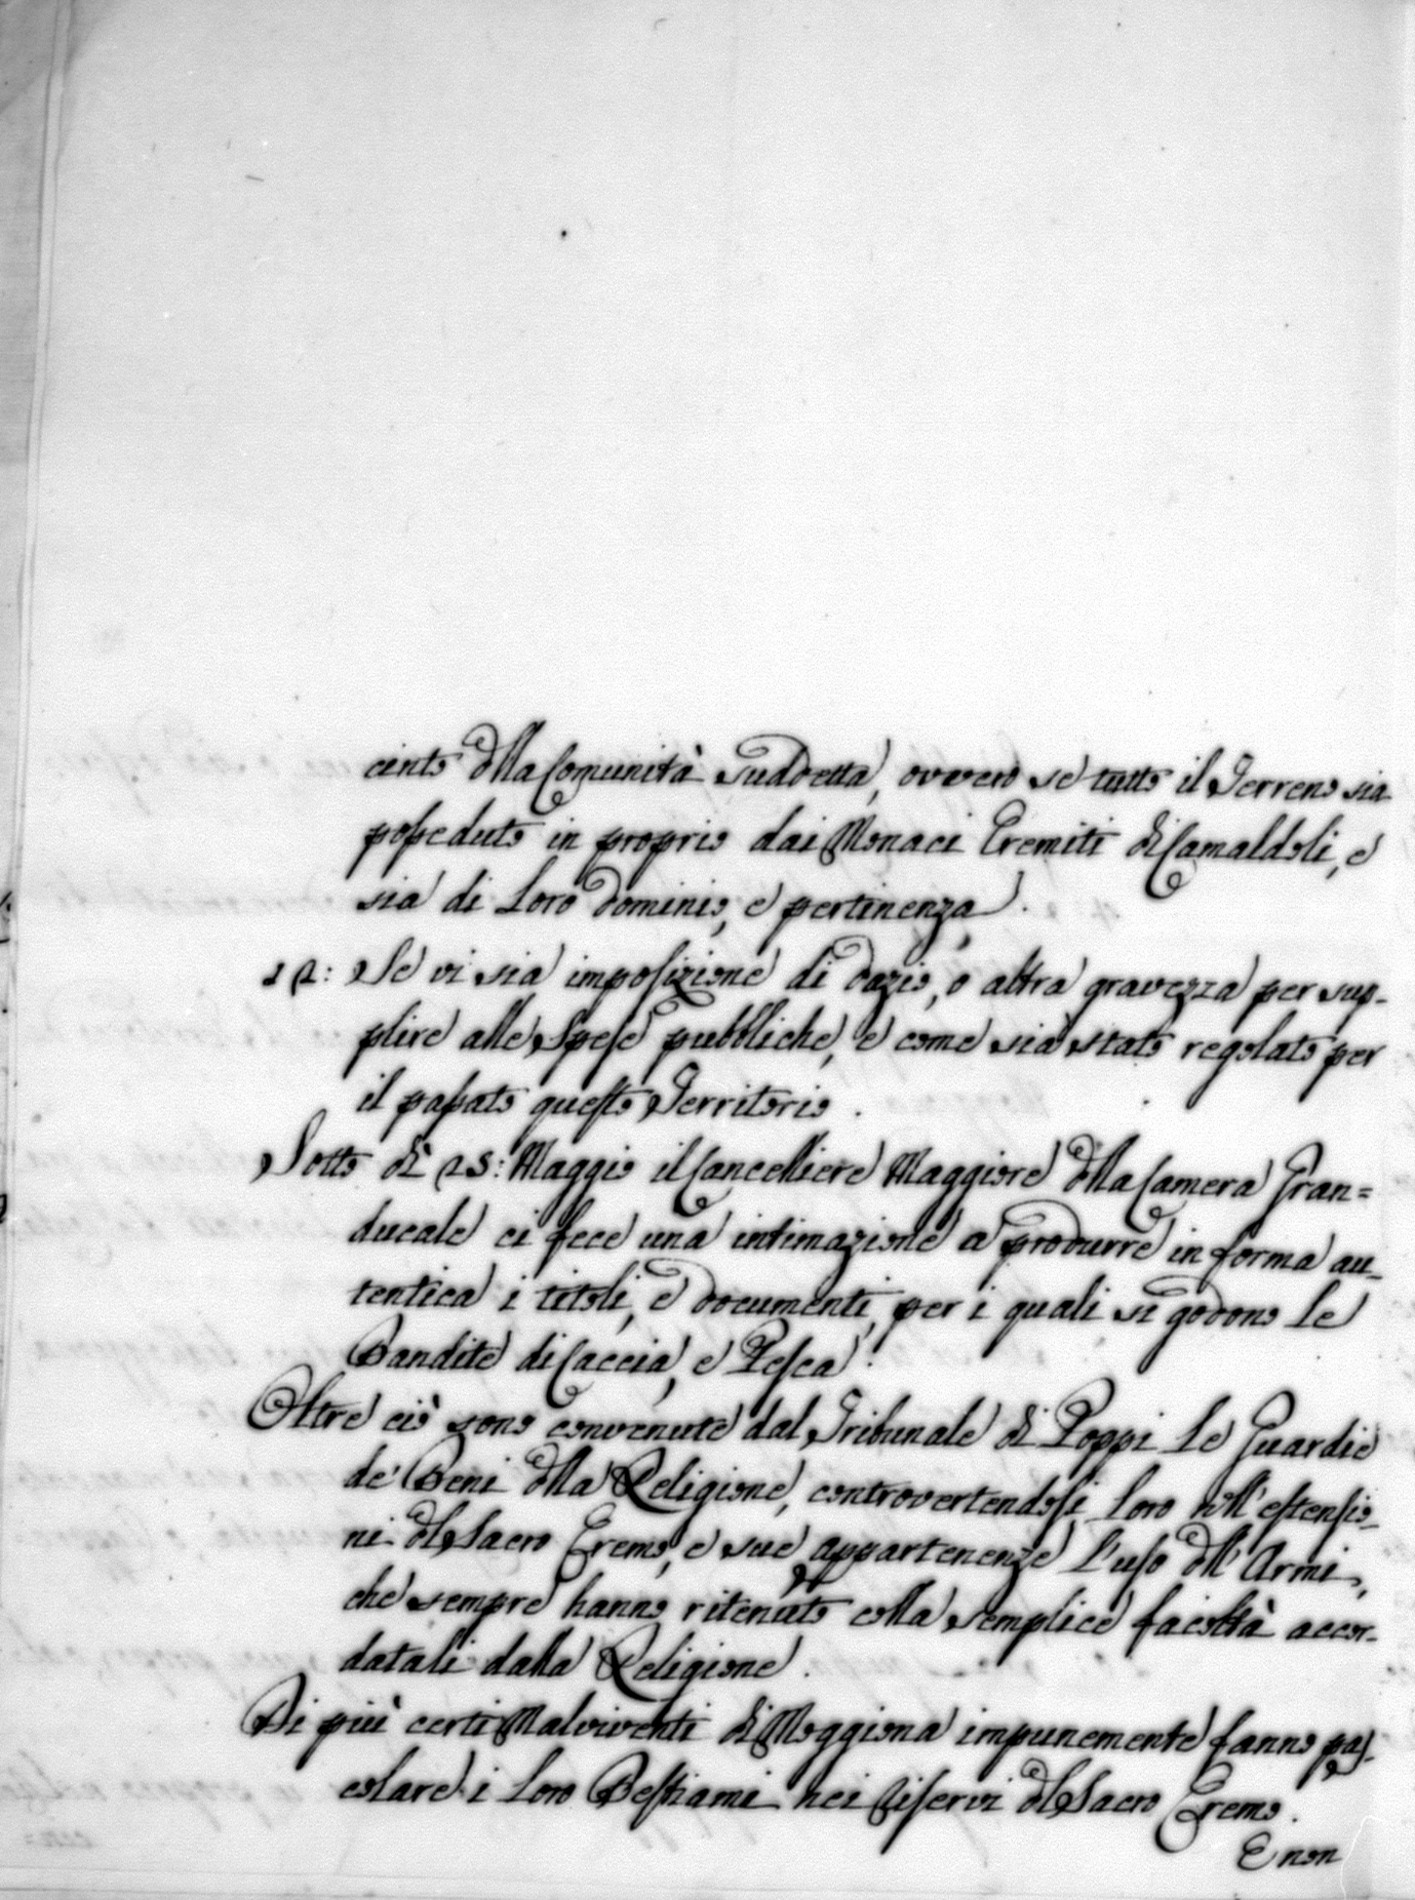 cinto dlla Comunità Suddetta, ovvero se tutto il Terreno sia
posseduto in proprio dai Monaci Eremiti di Camaldoli, e
sia di loro Dominio, e pertinenza.
Se vi sia imposizione di Dazio, o altra gravezza per sup-
plire alle Spese pubbliche, e come sia stato regolato per
il passato questo Territorio.
Sotto dì 25: Maggio il Cancelliere Maggiore dlla Camera Gran=
ducale ci fece una intimazione a produrre in forma au-
tentica i titoli, e documenti, per i quali si godono le
Bandite di Caccia, e Pesca.
Oltre ciò sono convenute dal Tribunale di Poppi le Guardie
de' Beni dlla Religione, controvertendosi loro nell' estensio-
ni dl Sacro Eremo, e sue appartenenze l'uso dll' Armi,
che sempre hanno ritenuto colla semplice facoltà accor-
datali dalla Religione.
Di più certi Malviventi di Moggiona impunemente fanno pas-
colare i loro Bestiami nei Riservi dl Sacro Eremo.
E non